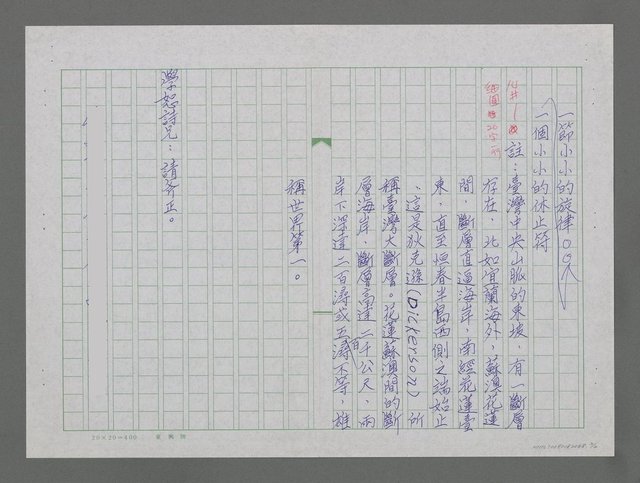 一節小小的旋律
一個小小的休止符
註：臺灣中央山脈的東坡，有一斷層
存在，北如宜蘭海外，蘇澳花蓮
間，斷層直逼海岸，南經花蓮臺
東，直至恒春半島西側之端始止
、這是狄克遜(Dickerson)所
稱臺灣大斷層。花蓮蘇澳間的斷
層海岸，斷層高達二千公尺，而
岸下深達二百潯或五百潯不等，雄
稱世界第一。
學恕詩兄：請斧正。
20×20=400